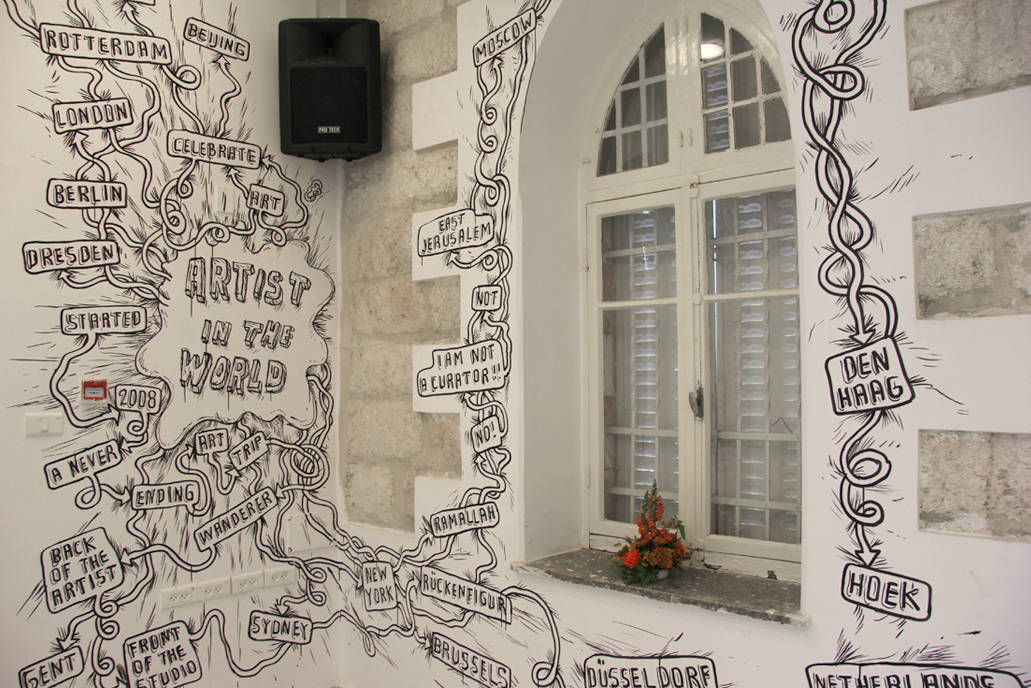 ROTTERDAM
BEIJING
LONDON
CELEBRATE
BERLIN
ART
DRESDEN
STARTED
2008
ARTIST
IN THE
WORLD
A NEVER
ENDING
ART
TRIP
WANDERER
BACK
OF THE
ARTIST
GENT
FRONT
OF THE
STUDIO
SYDNEY
PRO TECH
MOSCOW
EAST
JERUSALEM
NOT
I AM NOT
A CURATOR!!
NO!
RAMALLAH
NEW
YORK
RÜCKENFIGUR
BRUSSELS
DÜSSELDORF
DEN
HAAG
HOEK
NETHERLANDS